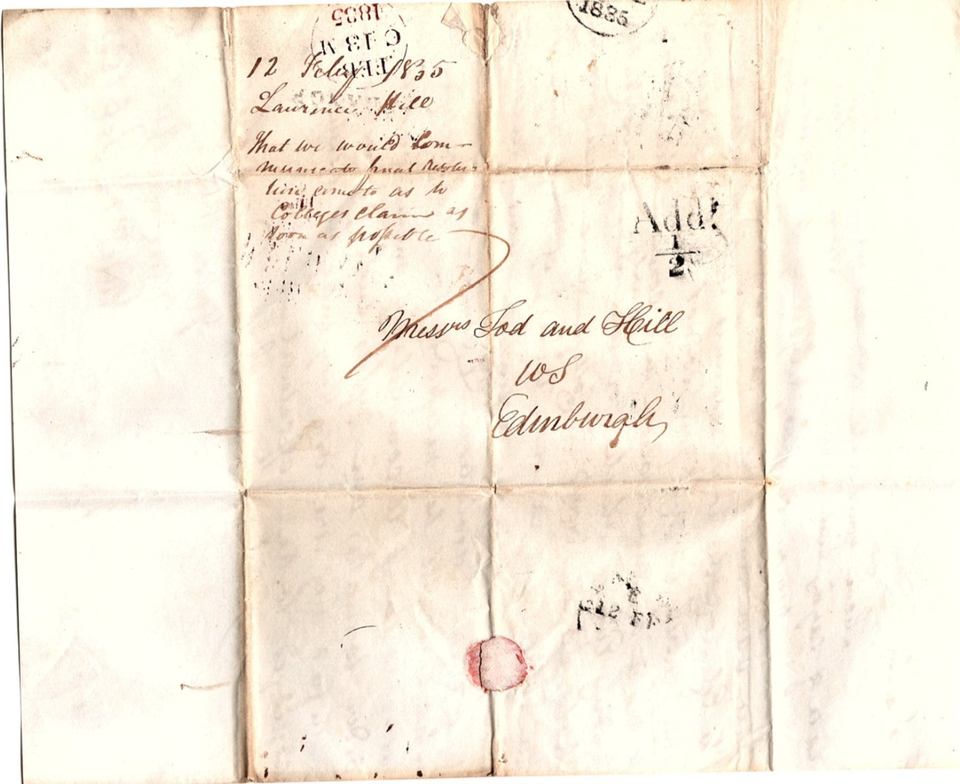 1835
C 13 M
FEB
1835
12 Feby 1835
Lawrence Hill
That we would Com-
municate final Resolu-
tion come to as to
Colleges Claim as
soon as possible
Addl
1
2
Messrs Tod and Hill
WS
Edinburgh
12 FE